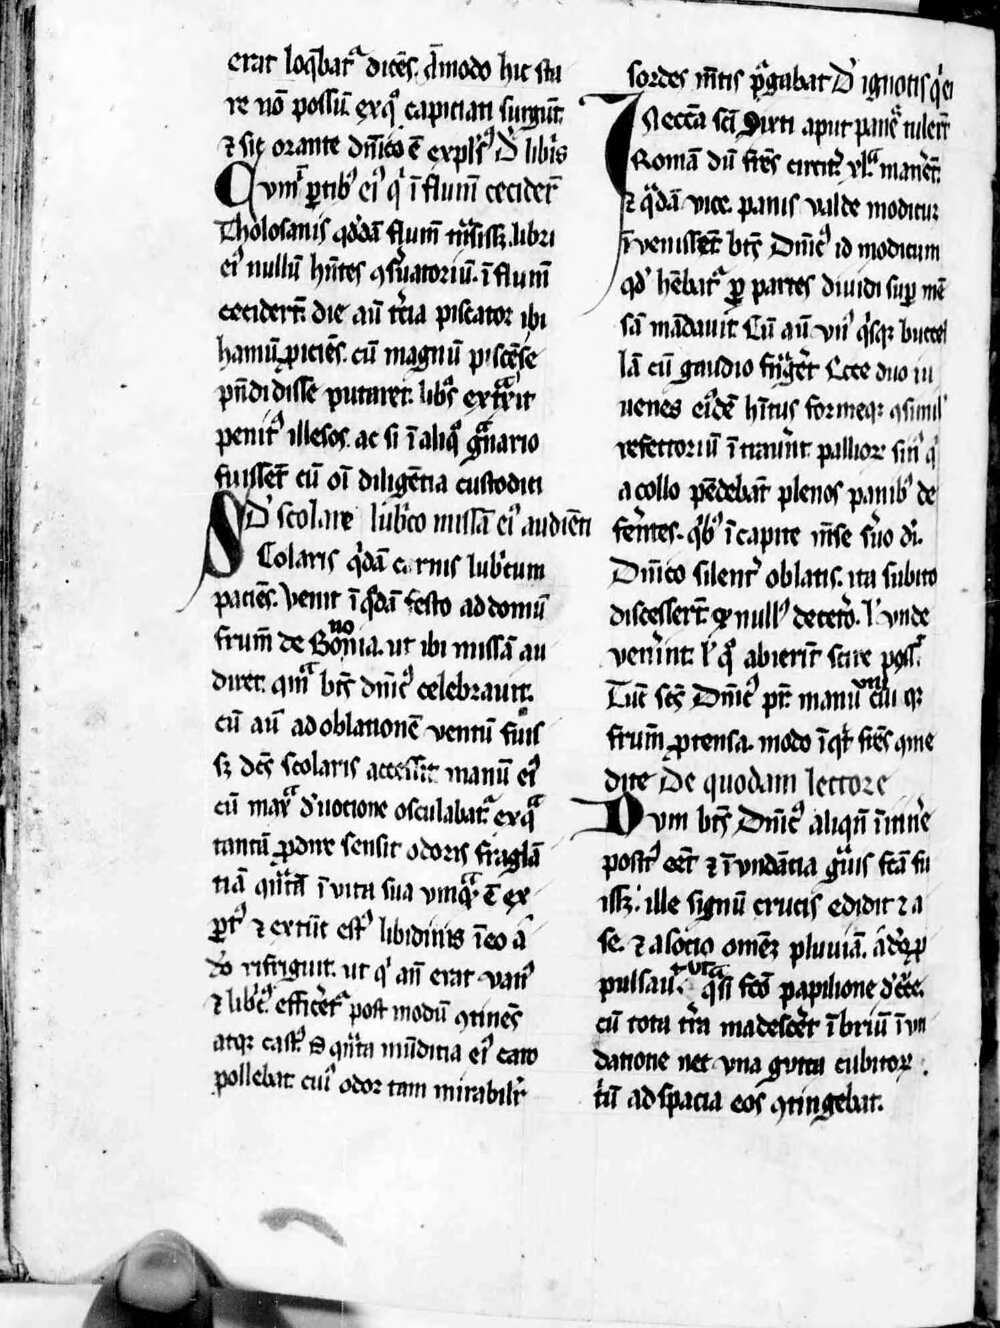 erat loq̄batᷣ dicēs. āmodo hic sta
re nō possū. ex qͦ capiciati surgūt.
⁊ sic orante dn̄ico ē explꝰ D̄ libris
Cvm ꝑtibꝰ eiꝰ qͥ ī flum̄ cecider̄
Tholosanis qͦddā flum̄ tn̄sissꝫ. libri
eiꝰ nullū hn̄tes ꝯẜuatoriū. ī flum̄
ceciderт̄. die aū t̄cia piscator ibi
hamū ꝓiciēs. cū magnū piscē se
p̄ndidisse putaret. libꝛꝰ extͣxit
penitꝰ illesos. ac si ī aliqͦ gͣnario
fuissēt cū oī diligētia custoditi
D̄ scolare lubͥco missā eiꝰ audiēti
Scolaris qͥdā carnis lubͥcum
paciēs. venit ī qͦdā festo ad domū
frum̄ de Bononia. ut ibi missā au
diret. qm̄ bt̄s dn̄icꝰ celebrauit.
cū aū ad oblationē ventū fuis
sꝫ. dc̄s scolaris accessit manū eiꝰ
cū maxͣ d̓uotione osculabatᷣ. ex qͣ
tantā ꝓdire sensit odoris fraglā
tiā qn̄tā ī vita sua vnqͣ ē ex
ꝑtꝰ ⁊ extūc estꝰ libidinis ī eo a
d̓o rifriguit. ut qͥ an̄ erat vanꝰ
⁊ libͥcꝰ. efficēt᷑ post modū ꝯtinēs
atqꝫ castꝰ. O qn̄ta mūditia eiꝰ caro
pollebat. cuiꝰ odor tam mirabilit̄
sordes m̄tis pͥgabat D̄ ignotis qͥ ei
In eccͣa sc̄i Sixti aput panē tuler̄t
Romā dū fr̄es circit̓ xlͣ manēt.
⁊ qͣdā vice panis valde modicus
īvenissēt bt̄s Dn̄icꝰ id modicum
qd̓ hēbatᷣ ꝑ partes diuidi suꝑ mē
sā mādauit. Cū aū vnꝰ qͥsqꝫ buccel
lā cū gaudio frāgēt Ecce duo iu
uenes eiꝰdē hītus formeqꝫ ꝯsimil̓
refectoriū ītrauūt. palliorꝫ sinꝰ qͥ
a collo pēdebāt plenos panibꝰ de
ferētes. qͥbꝰ ī capite mēse s̓uo di.
Dn̄ico silent̓ oblatis. ita subito
discesser̄t. ꝙ nullꝰ decetͦo. l̓ vnde
veneīnt. l̓ qͦ abierīt scire possꝫ.
Tūc sc̄s Dn̄icꝰ pr̄. manū vnicuiqꝫ
frum̄ ꝓtensa. modo īqͥt fr̄es ꝯme
dite De quodam lectore
Dvm bt̄s Dn̄icꝰ aliqn̄ ī itin̄e
positꝰ eēt ⁊ īvndātia gͣuis fc̄a fu
issꝫ. ille signū crucis edidit ⁊ a
se. ⁊ a socio omēꝫ pluviā. adeo ꝓ
pulsauit. qͣsi fc̄o papilione d̓ cͥce.
cū tota tr̄a madescēt ībriū īvn
datione nec vna gutta cubitorꝫ.
tͥū ad spacia eos ꝯtingebat.